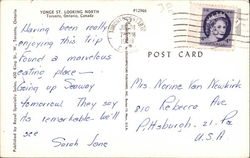 YONGE ST. LOOKING NORTH
Toronto, Ontario, Canada
P12968
POST CARD
Having been really
enjoying this trip
Found a marvelous
eating place —
Going up Seaway
tomorrow. They say
its remarkable. We'll
see
Sarah Jane
Mrs. Nerine Van Newkirk
810 Rebecca Ave
Pittsburgh. 21. Pa.
U.S.A.